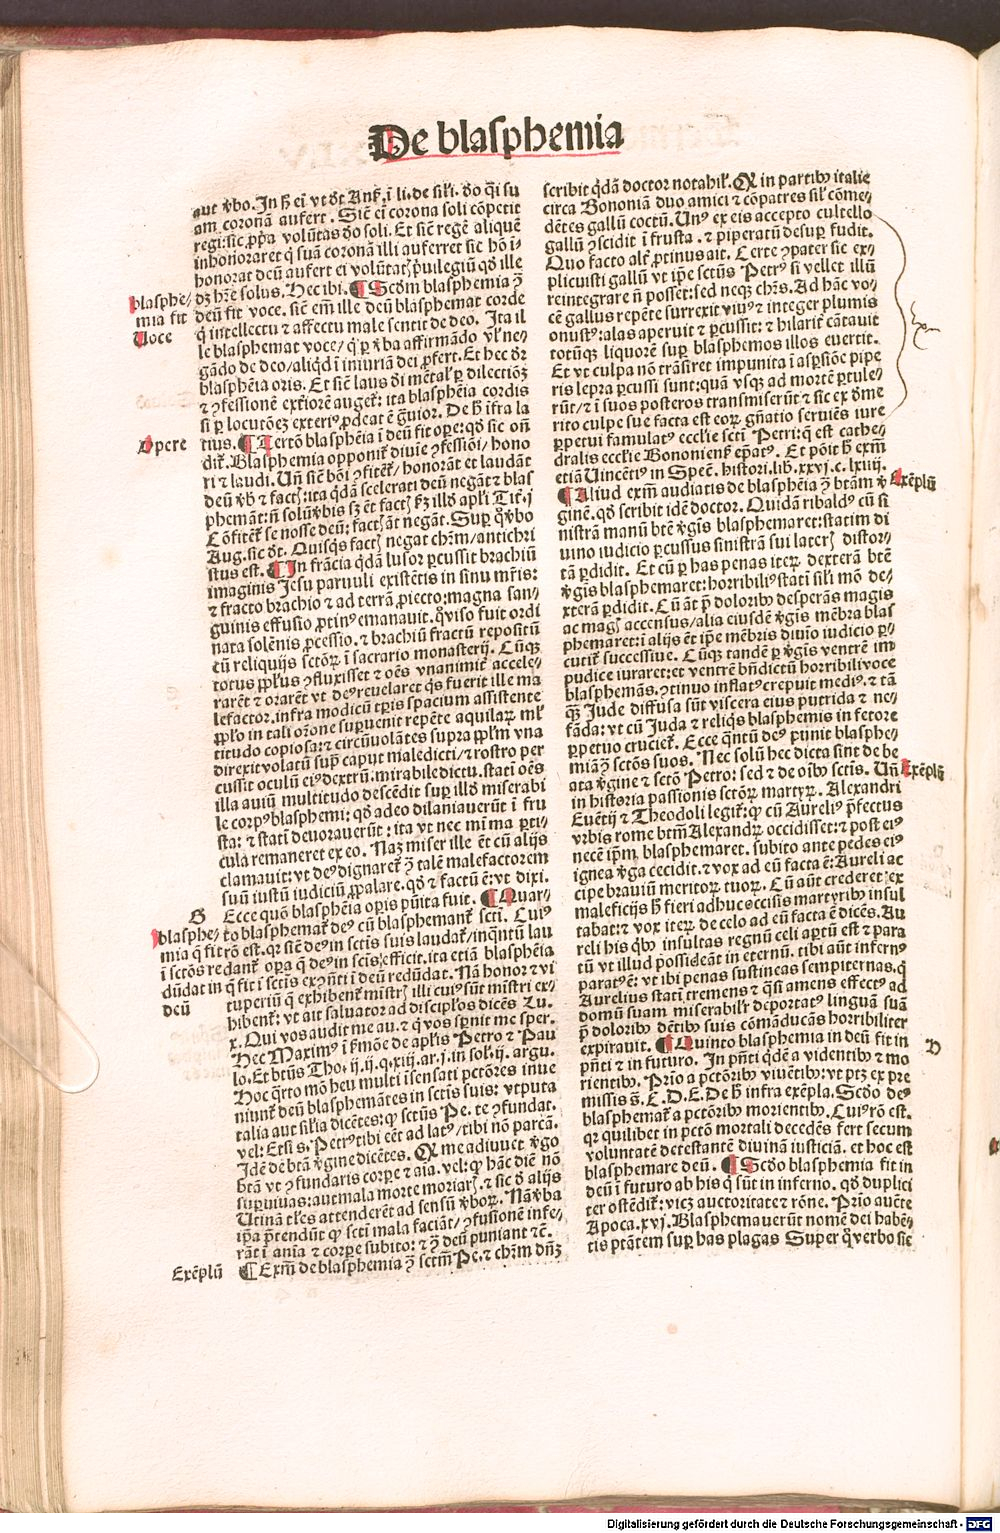 De blasphemia
aut v̾bo. Jn ẜ ei vt dt Anẜ. ī li. de sil'i. do q̄i su
am coronā aufert. Sic̄ ei corona soli cōpetit
regi: sic ꝓp̄a volūtas do soli. Et sic̄ regē aliquē
inhonoraret q̇ suā coronā illi auferret sic hō ī-
honorat deū aufert ei volūtatꝭ p̄uilegiū qd̄ ille
dꝫ hr̄e solus. Hec ibi. ¶ Scd̄m blasphemia ꝯ̄
deū fit voce. sic̄ em̄ ille deū blasphemat corde
q̇ intellectu ⁊ affectu male sentit de deo. Jta il
le blasphemat voce/ q̇ ꝑ v̾ba affirmādo vl' ne-
gādo de deo/ aliqd̄ ī iniuriā dei ꝓfert. Et hec dr̄
blasphēia oris. Et sic̄ laus di mētal' ꝑ dilectiōꝫ
⁊ ꝯfessionē ext̄iorē auget̄: ita blasphēia cordis
si ꝑ locutōeꝫ exteriꝰ ꝓdeat ē g̾uior. De ħ īfra la
tius. ¶ Tertō blasphēia ī deū fit oꝑe: qd̄ sic on̄
dit̄. Blasphemia opponit̄ diuīe ꝯfessiōi/ hono
ri ⁊ laudi. Uñ sic̄ bōi ꝯfitēt̄/ honorāt et laudāt
deū v̾b̾ ⁊ factꝭ: ita qdā scelerati deū negāt ⁊ blas
phemāt: n̄ solū v̾bis sꝫ et factꝭ
Cōfitēt̄ se nosse deū: factꝭ āt negāt. Suꝑ q̊ v̾bo
Aug. sic dt. Quisq̇s factꝭ negat chr̄m/ antichri
stus est. ¶ Jn frācia qdā lusor ꝑcussit brachiū
imaginis Jesu paruuli existētis in sinu mr̄is:
⁊ fracto brachio ⁊ ad terrā ꝓiecto: magna san-
guinis effusio ꝓtinꝰ emanauit. q̊ viso fuit ordi
nata solēnis ꝓcessio. ⁊ brachiū fractū repositū
cū reliquijs sctōꝝ ī sacrario monasterij. Cūqꝫ
totus ꝓpl'us ꝯfluxisset ⁊ oēs vnanimit̄ accele-
rarēt ⁊ orarēt vt deꝰ reuelaret q̇s fuerit ille ma
lefactor. infra modicū tꝑis spacium assistente
ꝓpl'o in tali orōne suꝑuenit repēte aquilaꝝ ml'
titudo copiosa: ⁊ circūuolātes supra ꝓpl'm vna
direxit volatū sup̄ caput maledicti/ ⁊ rostro per
cussit oculū eiꝰ dextrū. mirabile dictu. statī oēs
illa auiū multitudo descēdit suꝑ illd̄ miserabi
le corpꝰ blasphemi: qd̄ adeo dilaniauerūt ī fru
sta: ⁊ statī deuorauerūt: ita vt nec mīma ꝑti-
cula remaneret ex eo. Naꝫ miser ille ēt cū alijs
clamauit: vt deꝰ dignaret̄ ꝯ̄ talē malefactorem
suū iustū iudiciū ꝓpalare. qd̄ ⁊ factū ē: vt dixi.
Ecce quō blasphēia oꝑis pūita fuit. ¶ Quar-
to blasphemat̄ deꝰ cū blasphemant̄ scti. Cuiꝰ
rō est. qr sic̄ deꝰ in sctis suis laudat̄/ inqn̄tū lau
dant̄ oꝑa q̄ deꝰ in scis efficit. ita etiā blasphēia
in q̄ fit ī sctis ex ꝯn̄ti ī deū redūdat. Nā honor ⁊ vi
tuperiū q̄ exhibent̄ mistrꝭ illi cuiꝰ sūt mistri ex-
hibent̄: vt ait saluator ad discipl'os dicēs Lu.
x. Qui vos audit me au. ⁊ q̇ vos spnit me sper.
Hec Maximꝰ ī ẜmōe de apl'is Petro ⁊ Pau
lo. Et btūs Tho. ij. ij. q. xiij. ar. j. in sol'. ij. argu.
Hoc q̊rto mō heu multi īsensati pctōres inue
niunt̄ deū blasphemātes in sctis suis: vtputa
talia aut sil'ia dicētes: qꝙ sctūs Pe. te ꝯfundat.
vel: Etsi s. Petrꝰ tibi eēt ad latꝰ/ tibi nō parcā.
Jdē dē btā v̾gine dicētes. Ꝙ me adiuuet v̾go
btā vt ꝯfundaris corpe ⁊ aīa. vel: qꝙ hāc diē nō
suꝑuiuas: aut mala morte moriarꝭ. ⁊ sic d̄ alijs
Utinā tl'es attenderēt ad sensū v̾boꝝ. Nā v̾ba
ip̄a p̄tendūt qꝙ scti mala faciāt/ ꝯfusionē infe-
rāt ī anīa ⁊ corꝑe subito: ⁊ ꝯ̄ deū puniant ⁊c̄.
¶ Exm̄ de blasphemia ꝯ̄ sctm̄ Pe. ⁊ chr̄m dn̄ꝫ
blasphe-
mia fit
Uoce
Opere
B
blasphe-
mia q̄ fit
ī sctōs re
dūdat in
deū
Exēplū
scribit qdā doctor notabil'. Ꝙ in partibꝰ italie
circa Bononiā duo amici ⁊ cōpatres sil' cōme-
dētes gallū coctū. Unꝰ ex eis accepto cultello
gallū ꝯscidit ī frusta. ⁊ piperatū desuꝑ fudit.
Quo facto alt̄ ꝓtinus ait. Certe ꝯpater sic ex-
plicuisti gallū vt ip̄e sctūs Petrꝰ si vellet illū
reintegrare n̄ posset: sed neqꝫ chr̄s. Ad hāc vo-
cē gallus repēte surrexit viuꝰ ⁊ integer plumis
onustꝰ: alas aperuit ⁊ ꝑcussit: ⁊ hilarit̄ cātauit
totūqꝫ liquorē suꝑ blasphemos illos euertit.
Et vt culpa nō trāsiret impunita ī aspsiōe pipe
ris lepra ꝑcussi sunt: quā vsqꝫ ad mortē ꝑtule-
rūt/ ⁊ ī suos posteros transmiserūt ⁊ sic ex dn̄ me
rito culpe sue facta est eoꝝ gn̄atio seruiēs iure
ꝑpetui famulatꝰ eccl'ie scti Petri: q̄ est cathe-
dralis eccl'ie Bononien̄ ep̄atꝰ. Et pōit ħ exm̄
etiā Uincētiꝰ in Speē. histori. lib. xxvj. c. lxiiij.
¶ Aliud exm̄ audiatis de blasphēia ꝯ̄ btām v̾
ginē. qd̄ scribit idē doctor. Quidā ribaldꝰ cū si
nistrā manū btē v̾gis blasphemaret: statim di
uino iudicio ꝑcussus sinistrā sui laterꝭ distor-
tā ꝑdidit. Et cū ꝑ has penas iteꝝ dexterā btē
v̾gis blasphemaret: horribiliꝰ statī sil'i mō de-
xterā ꝑdidit. Cū āt p̄ doloribꝰ desperās magis
ac magꝭ accensus/ alia eiusdē v̾gis mēbra blas
phemaret: ī alijs ēt ip̄e mēbris diuīo iudicio ꝑ-
cutit̄ successiue. Cūqꝫ tandē ꝑ v̾gis ventrē im
pudice iuraret: et ventrē bn̄dictū horribili voce
blasphemās. ꝯtinuo inflatꝰ crepuit mediꝰ. ⁊ tā
q̄ꝫ Jude diffusa sūt viscera eius putrida ⁊ ne-
fāda: vt cū Juda ⁊ reliq̇s blasphemis in fetore
ꝑpetuo cruciet̄. Ecce qn̄tū deꝰ punit blasphe-
miā ꝯ̄ sctōs suos. Nec solū hec dicta sint de be
ata v̾gine ⁊ sctō Petro: sed ⁊ de oībꝰ sctis. Uñ
in historia passionis sctōꝝ martyꝝ. Alexandri
Euētij ⁊ Theodoli legit̄: qꝙ cū Aureliꝰ p̄fectus
vrbis rome btm̄ Alexandrꝝ occidisset: ⁊ post eiꝰ
necē ip̄m blasphemaret. subito ante pedes eiꝰ
ignea v̾ga cecidit. ⁊ vox ad eū facta ē: Aureli ac
cipe brauiū meritoꝝ tuoꝝ. Cū aūt crederet ex
maleficijs ħ fieri adhuc occisis martyribꝰ insul
tabat: ⁊ vox iteꝝ de celo ad eū facta ē dicēs. Au
reli his q̇bꝰ insultas regnū celi aptū est ⁊ para
tū vt illud possideāt in eternū. tibi aūt infernꝰ
paratꝰ ē: vt ibi penas sustineas sempiternas. q̇
Aurelius statī tremens ⁊ q̄si amens effectꝰ ad
domū suam miserabilr̄ deportatꝰ linguā suā
p̄ doloribꝰ dētibꝰ suis cōmāducās horribiliter
expirauit. ¶ Quinto blasphemia in deū fit in
pn̄ti ⁊ in futuro. Jn pn̄ti qdē a videntibꝰ ⁊ mo
rientibꝰ. Prīo a pctōribꝰ viuētibꝰ: vt ptꝫ ex pre
missis s. C. D. E. De ħ infra exēpla. Scdo deꝰ
blasphemat̄ a pctōribꝰ morientibꝰ. Cuiꝰ rō est.
qr quilibet in pctō mortali decedēs fert secum
voluntatē detestantē diuinā iusticiā. et hoc est
blasphemare deū. ¶ Scdo blasphemia fit in
deū ī futuro ab his q̇ sūt in inferno. qd̄ duplici
ter ostēdit̄: vicꝫ auctoritate ⁊ rōne. Prīo aucte
Apoca. xvj. Blasphemauerūt nomē dei habē-
tis ptātem suꝑ has plagas Super q̊ verbo sic
Exēplū
Exēplū
D